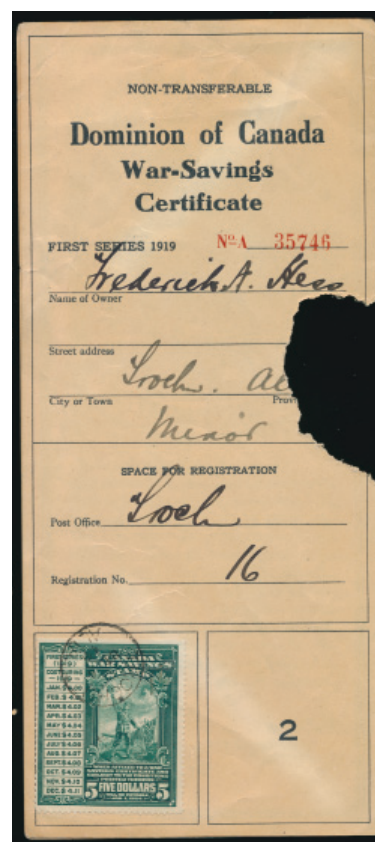 NON-TRANSFERABLE
Dominion of Canada
War-Savings
Certificate
FIRST SERIES 1919 No A 35746
Frederick A. Hess
Name of Owner
Street address
Troch.
City or Town Prov
Minor
SPACE FOR REGISTRATION
Post Office Troch
Registration No. 16
FIRST SERIES
(1919)
COST DURING
1919
JAN. $4.00
FEB. $4.01
MAR. $4.02
APR. $4.03
MAY $4.04
JUNE $4.05
JULY $4.06
AUG. $4.07
SEPT. $4.08
OCT. $4.09
NOV. $4.10
DEC. $4.11
CANADA
WAR SAVINGS
STAMP
5 FIVE DOLLARS 5
2